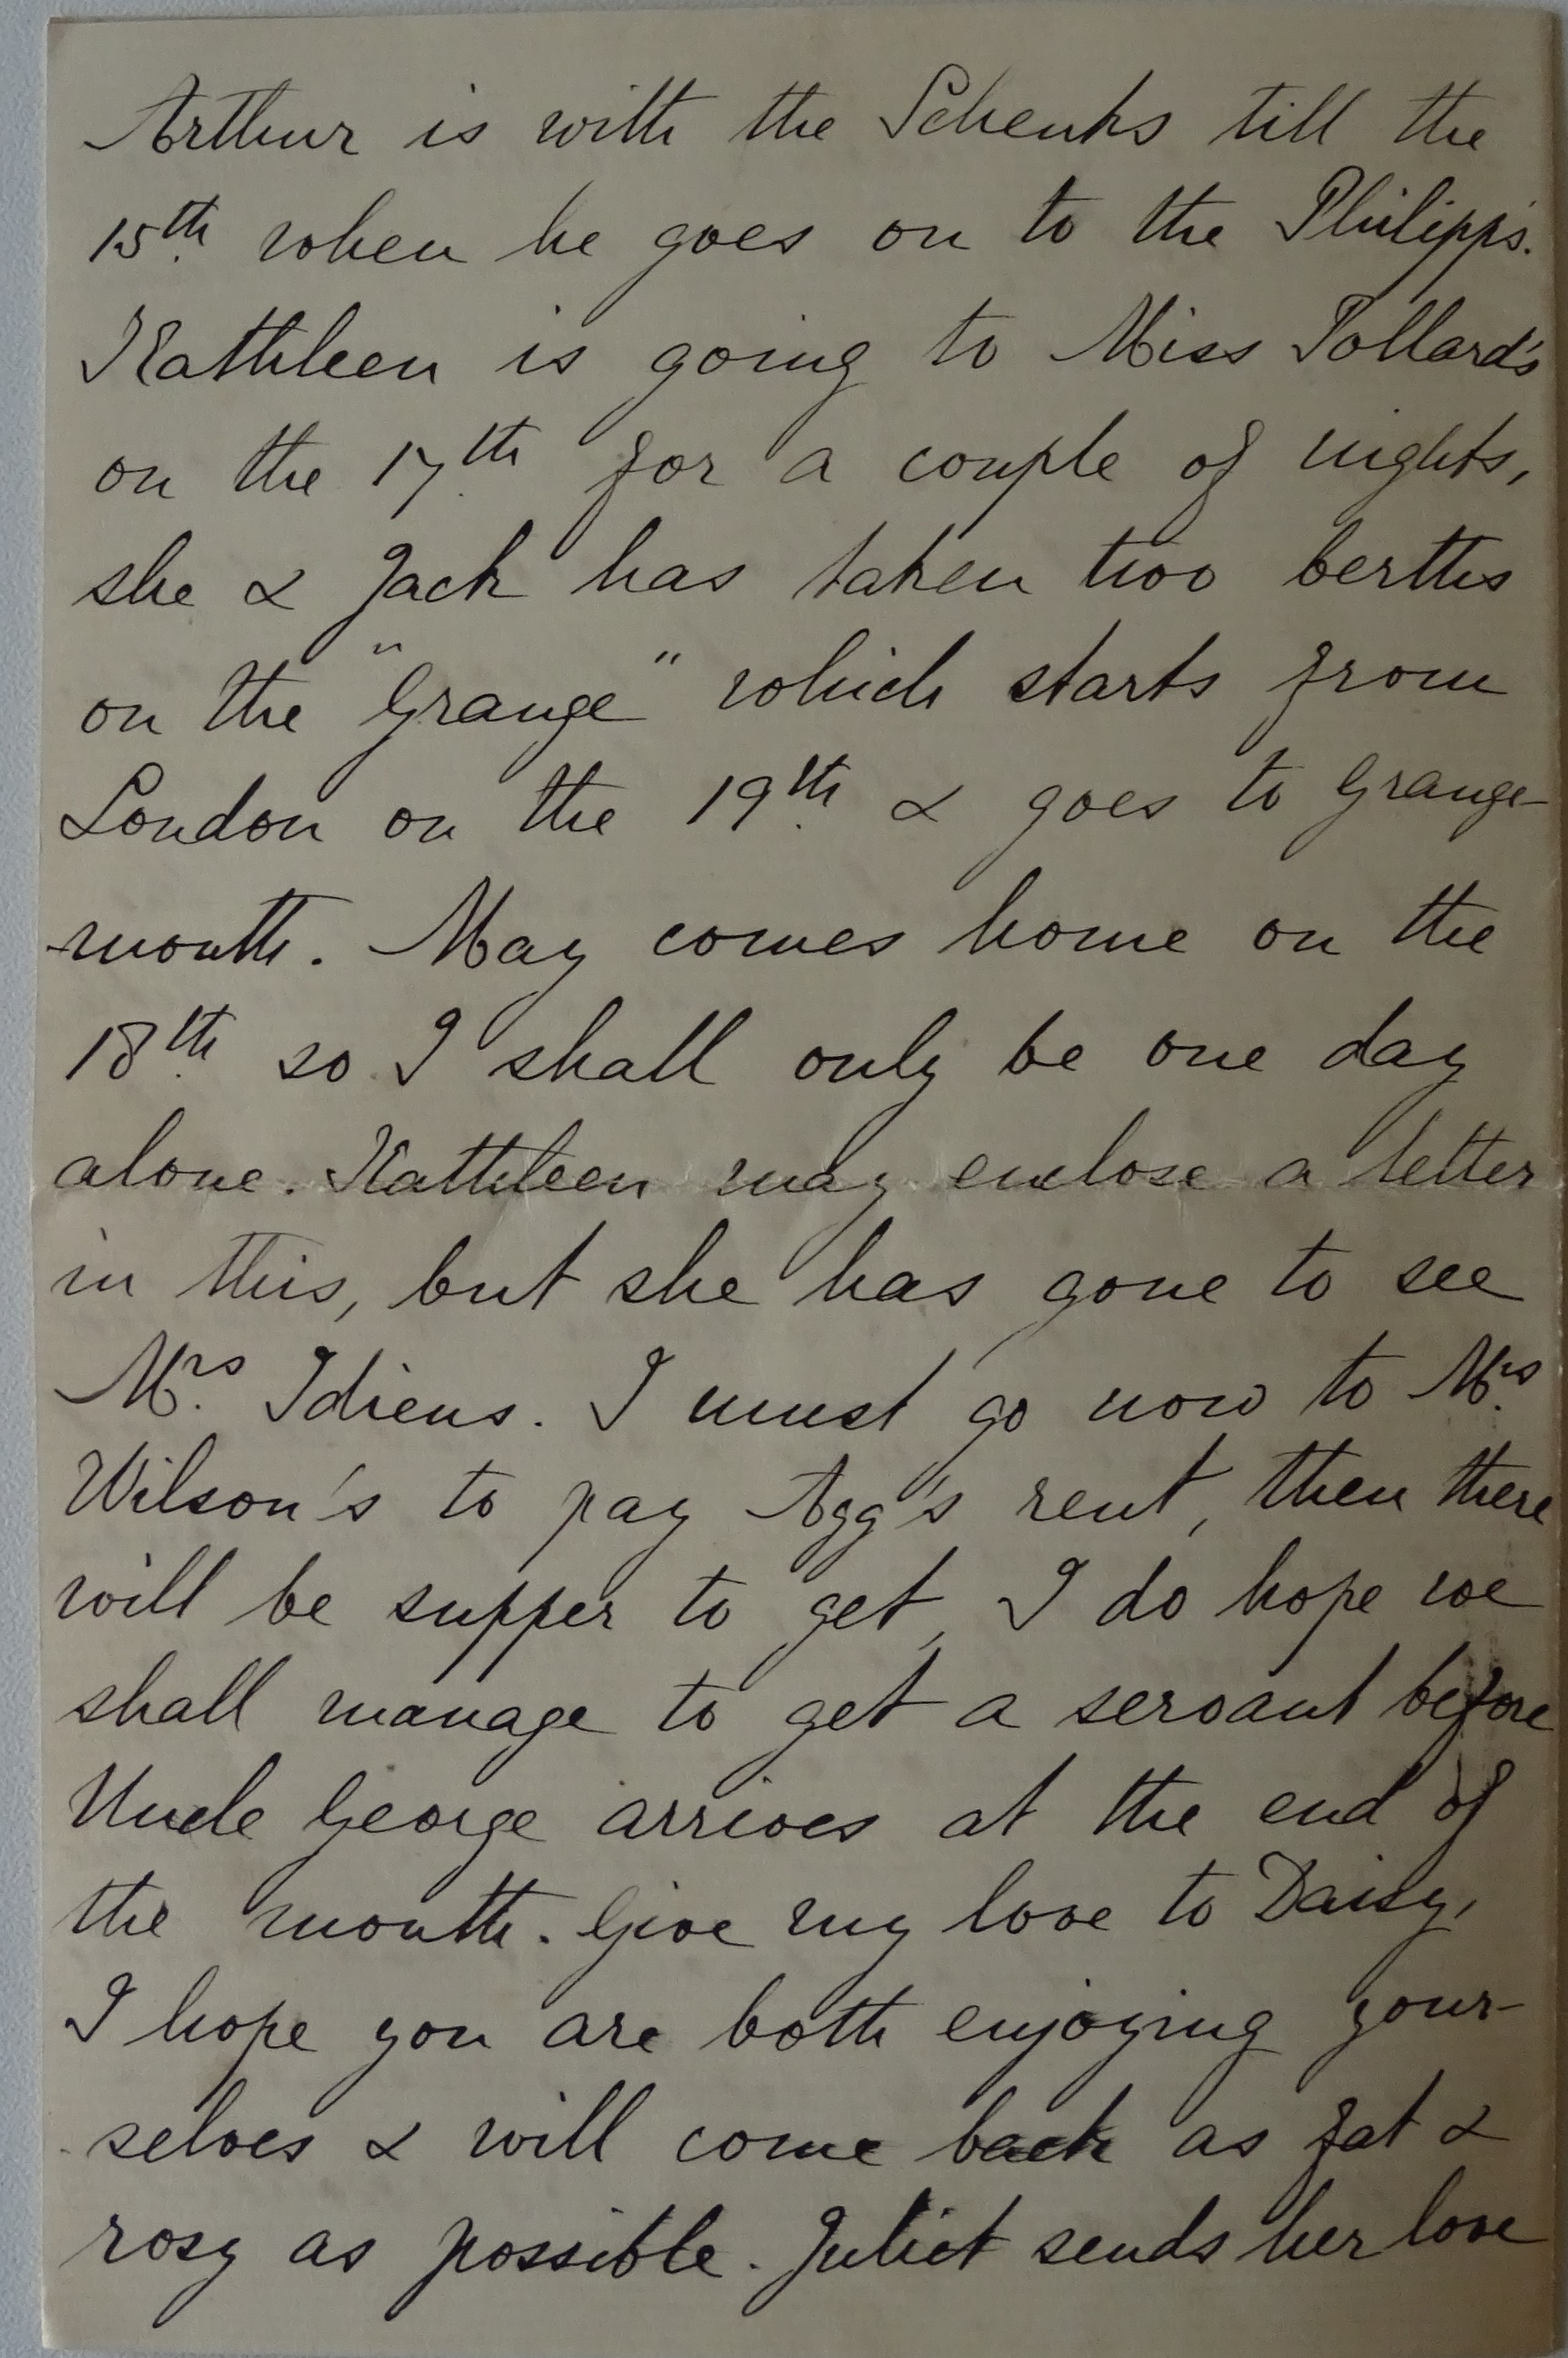 Arthur is with the Schenks till the
15th. when he goes on to the Philipps.
Kathleen is going to Miss Pollard's
on the 17th. for a couple of nights,
she & Jack has taken two berths
on the "Grange" which starts from
London on the 19th. & goes to Grange-
-mouth. May comes home on the
18th. so I shall only be one day
alone. Kathleen may enclose a letter
in this, but she has gone to see
Mrs. Idiens. I must go now to Mrs.
Wilson's to pay Agg's rent, then there
will be supper to get, I do hope we
shall manage to get a servant before
Uncle George arrives at the end of
the month. Give my love to Daisy,
I hope you are both enjoying your-
-selves & will come back as fat &
rosy as possible. Juliet sends her love